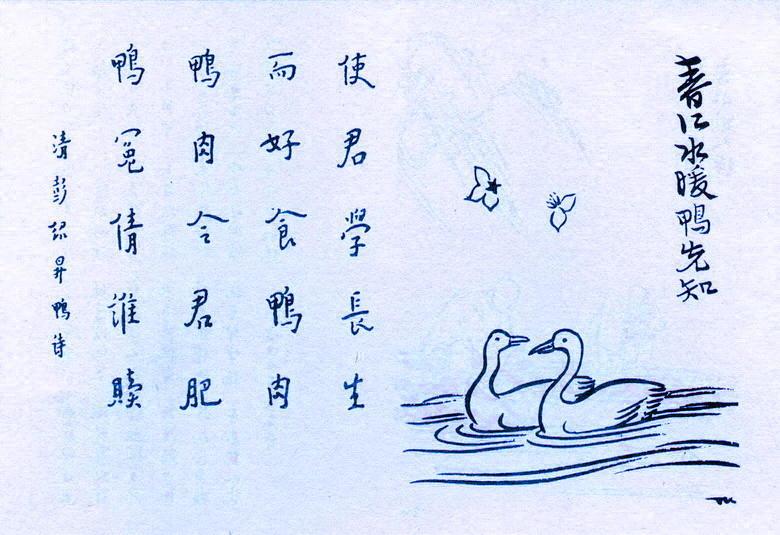 春江水暖鴨先知
使君學長生
而好食鴨肉
鴨肉令君肥
鴨冤倩誰贖
清彭紹昇鴨詩